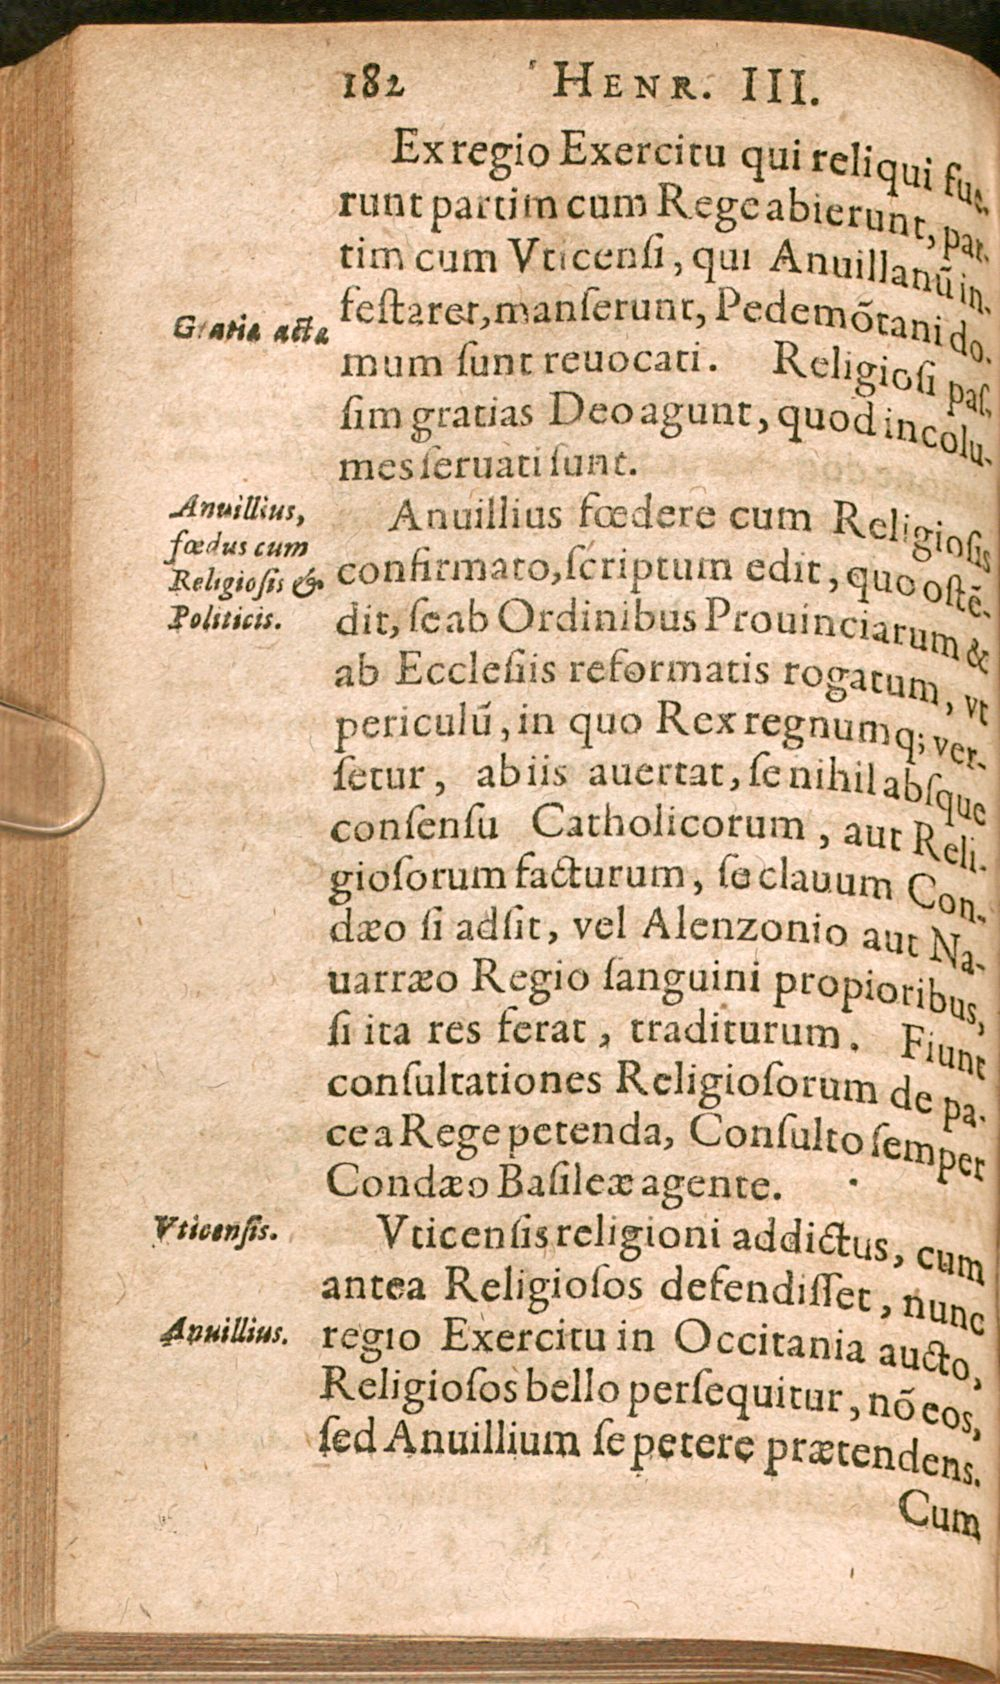 182 HENR. III.
Ex regio Exercitu qui reliqui fue-
runt partim cum Rege abierunt, par-
tim cum Vticensi, qui Anuillanū in-
festaret, manserunt, Pedemōtani do-
Gratia acta
mum sunt reuocati. Religiosi pas-
sim gratias Deo agunt, quod incolu-
mes seruati sunt.
Anuillius,
fœdus cum
Religiosis &
Politicis.
Anuillius fœdere cum Religiosis
confirmato, scriptum edit, quo ostē-
dit, se ab Ordinibus Prouinciarum &
ab Ecclesiis reformatis rogatum, vt
periculū, in quo Rex regnumq; ver-
setur, ab iis auertat, se nihil absque
consensu Catholicorum, aut Reli-
giosorum facturum, se clauum Con-
dæo si adsit, vel Alenzonio aut Na-
uarræo Regio sanguini propioribus,
si ita res ferat, traditurum. Fiunt
consultationes Religiosorum de pa-
ce a Rege petenda, Consulto semper
Condæo Basileæ agente.
Vticensis.
Vticensis religioni addictus, cum
antea Religiosos defendisset, nunc
Anuillius.
regio Exercitu in Occitania aucto,
Religiosos bello persequitur, nō eos,
sed Anuillium se petere prætendens.
Cum